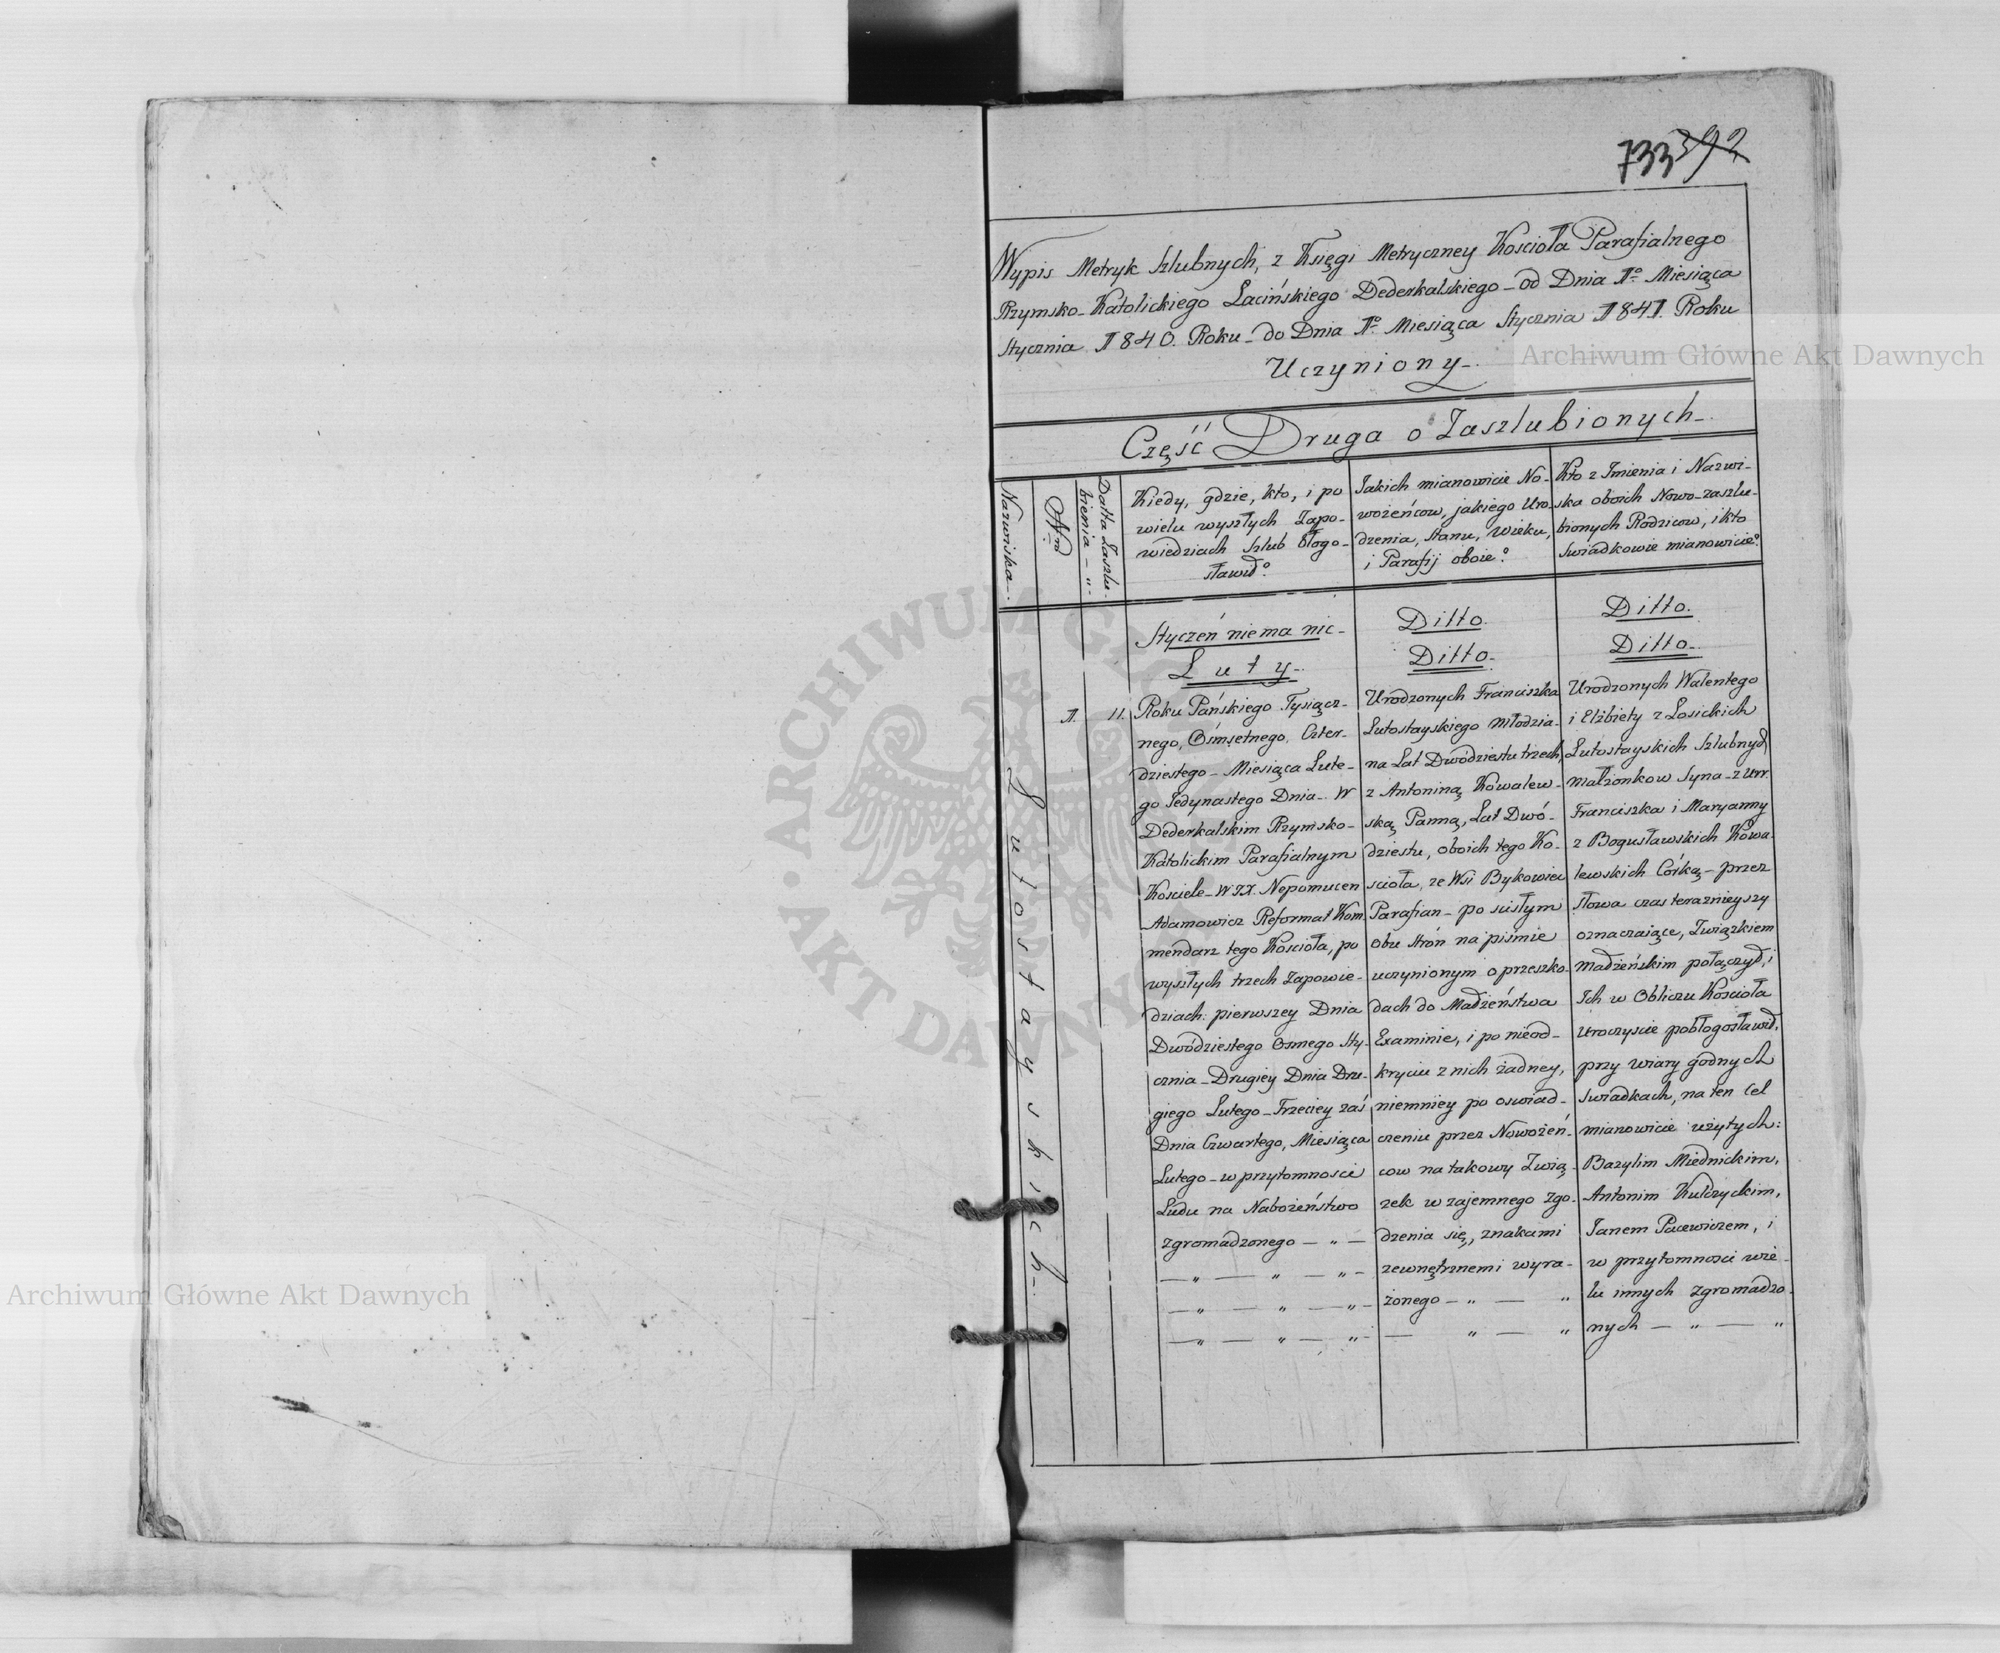 733 392
Wypis Metryk Szlubnych, z Księgi Metryczney Kościoła Parafialnego
Rzymsko-Katolickiego Łacińskiego Dederkalskiego - od Dnia 1o Miesiąca
Stycznia 1840. Roku - do Dnia 1o Miesiąca Stycznia 1841. Roku
Uczyniony -.
Część Druga o Zaszlubionych -.
Nazwiska -.
Nrd
Datta Zaszlu-
bienia - „ -
Kiedy, gdzie, kto, i po
wielu wyszłych Zapo-
wiedziach Szlub Błogo-
sławił?
Jakich mianowicie No-
wożeńcow, jakiego Uro-
dzenia, Stanu, Wieku,
i Parafij oboie?
Kto z Imienia i Nazwi-
ska oboich Nowo-zaszlu-
bionych Rodzicow, i kto
Swiadkowie mianowicie?
Lutostayskich -
1.
11.
Styczeń niema nic -
Luty -.
Roku Pańskiego Tysiącz-
nego, Ośmsetnego, Czter-
dziestego - Miesiąca Lute-
go Jedynastego Dnia - W
Dederkalskim Rzymsko-
Katolickim Parafialnym
Kościele - W JX. Nepomucen
Adamowicz Reformat Kom
mendarz tego Kościoła, po
wyszłych trzech Zapowie-
dziach: pierwszey Dnia
Dwódziestego Osmego Sty-
cznia - Drugiey Dnia Dru-
giego Lutego - Trzeciey zaś
Dnia Czwartego, Miesiąca
Lutego - w przytomnosci
Ludu na Nabożeństwo
zgromadzonego - „ -
- „ - „ - „ -
- „ - „ - „ -
- „ - „ - „ -
Ditto.
Ditto -
Urodzonych Franciszka
Lutostayskiego Młodzia-
na Lat Dwódziestu trzech,
z Antoniną Kowalew-
ską Panną, Lat Dwó-
dziestu, oboich tego Ko-
scioła, ze Wsi Bykowiec
Parafian - po scisłym
obu Strón na piśmie
uczynionym o przeszko-
dach do Małżeństwa
Examinie, i po nieod-
kryciu z nich żadney,
niemniey po oswiad-
czeniu przez Nowożeń-
cow na takowy Zwią-
zek wzajemnego zgo-
dzenia się, znakami
zewnętrznemi wyra-
żonego - „ - „
- „ - „
Ditto.
Ditto -.
Urodzonych Walentego
i Elżbiety z Łosickich
Lutostayskich Szlubnych
małżonkow Syna - z Urr.
Franciszka i Maryanny
z Bogusławskich Kowa-
lewskich Córką - przez
słowa czas teraznieyszy
oznaczaiące, Związkiem
Małżeńskim połączył, i
Ich w Obliczu Kościoła
Uroczyscie pobłogosławił,
przy wiary godnych
Swiadkach, na ten cel
mianowicie użytych:
Bazylim Miednickim,
Antonim Kulczyckim,
Janem Pacewiczem, i
w przytomnosci wie-
lu innych zgromadzo-
nych - „ - „
Archiwum Główne Akt Dawnych
Archiwum Główne Akt Dawnych